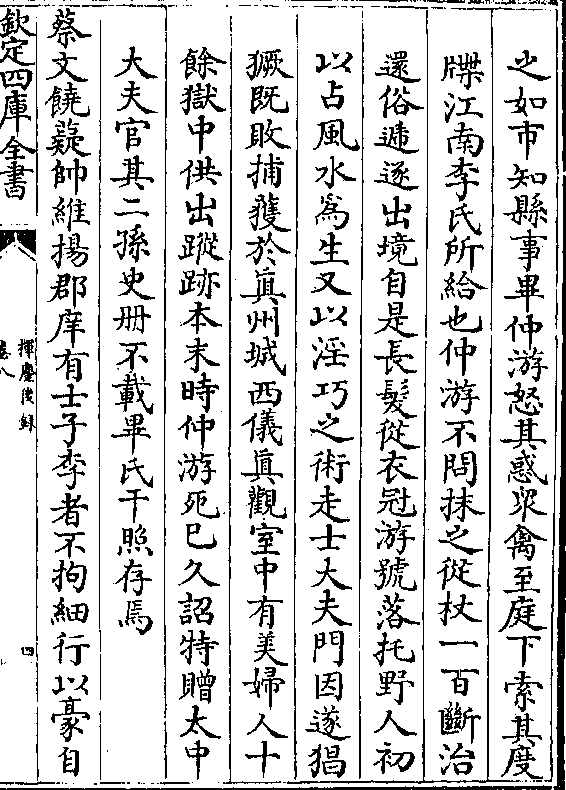 之如市知縣事畢仲游怒其惑衆禽至庭下索其度
牒江南李氏所給也仲游不問抹之從杖一百斷治
還俗遞逐出境自是長髮從衣冠游號落托野人初
以占風水爲生又以淫巧之術走士大夫門因遂猖
獗既敗捕獲於眞州城西儀眞觀室中有美婦人十
餘獄中供出蹤跡本末時仲游死已久詔特贈太中
大夫官其二孫史册不載畢氏干照存焉
蔡文饒薿帥維揚郡庠有士子李者不拘細行以豪自
欽定四庫全書
揮麈後録
卷八
四